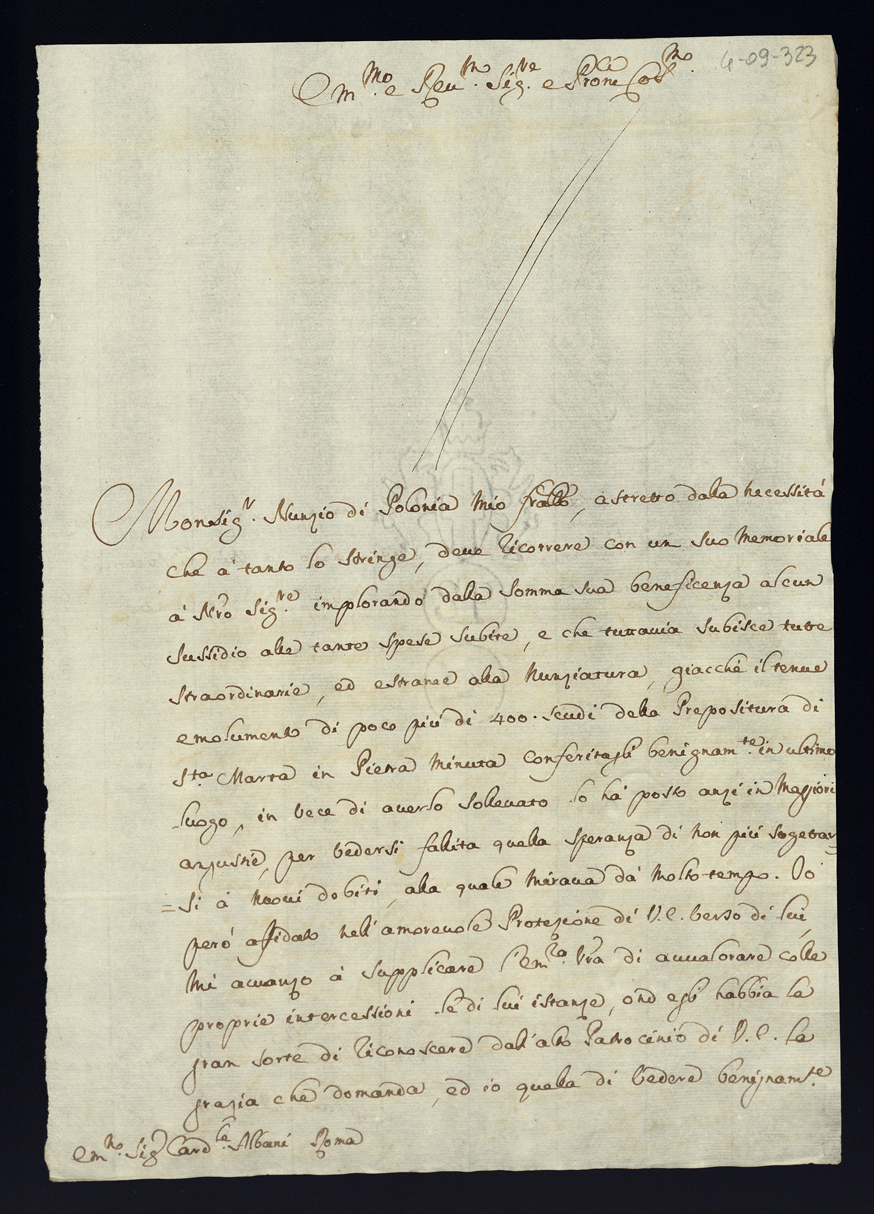 4-09-323
Em.mo e Reu.mo Sig.re e Prone Col.mo
Monsig.r Nunzio di Polonia mio frallo, astretto dalla necessità
che à tanto lo stringe, deue ricorrere con un suo memoriale
à Nro Sig.re implorando dalla somma sua beneficenza alcun
sussidio alle tante spese subite, e che tuttauia subisce tutte
straordinarie, ed estranee alla Nunziatura, giacché il tenue
emolumento di poco più di 400. scudi della Prepositura di
S.ta Marta in Pietra Minuta conferitagli benignam.te in ultimo
luogo, in vece di auerlo solleuato lo hà posto anzi in maggiori
angustie, per vedersi fallita quella speranza di non più sogettar
=si à nuoui debiti, alla quale miraua dà molto tempo. Io
però affidato nell'amoreuole Protezione di V.E. verso di lui,
mi auanzo à supplicare l'Em.za Vra di auualorare colle
proprie intercessioni le di lui istanze, ond'egli habbia la
gran sorte di riconoscere dall'alto Patrocinio di V.E. la
grazia che domanda, ed io quella di vedere benignam.te
Em.mo Sig.r Card.le Albani Roma